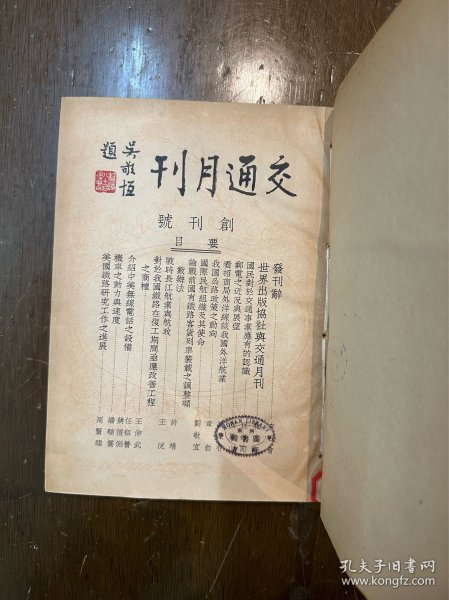 交通月刊
吳敬恆
題
創刊號
要目
發刊辭
世界出版協社與交通月刊
國民對於交通事業應有的認識
郵電之近況與展望
看招商局外洋線談我國外洋航業
我國公路政策之動向
國際民航組織及其使命
論戰前國有鐵路客貨列車裝載之調整
數辦法
戰時長江航業與航政
對於我國鐵路在復工期間亟應改善工程
之商榷
介紹中英無線電話之設備
機車之動力與速度
英國鐵路研究工作之進展
章彰
劉敬宜
許靖
王洸
王仲武
任祖
孔夫子旧书网
https://book.kongfz.com